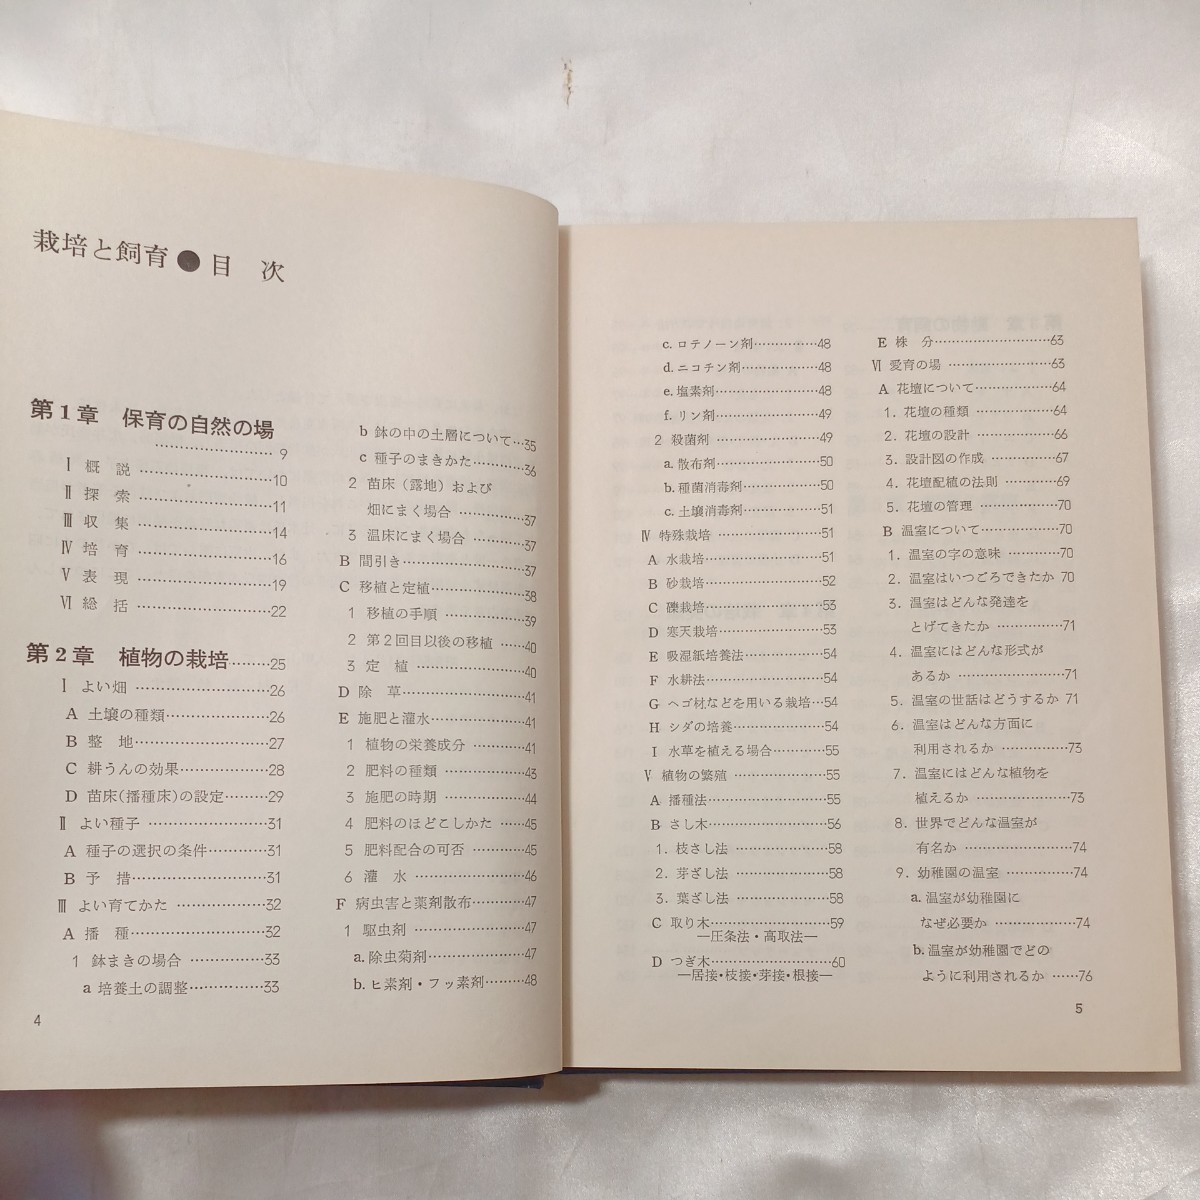 栽培と飼育●目　次
第1章　保育の自然の場
……………………9
Ⅰ 概　説 ………………10
Ⅱ 探　索 ………………11
Ⅲ 収　集 ………………14
Ⅳ 培　育 ………………16
Ⅴ 表　現 ………………19
Ⅵ 総　括 ………………22
第2章　植物の栽培……25
Ⅰ よい畑 ………………26
A 土壌の種類……………26
B 整　地…………………27
C 耕うんの効果…………28
D 苗床(播種床)の設定……29
Ⅱ よい種子 ……………31
A 種子の選択の条件………31
B 予　措…………………31
Ⅲ よい育てかた …………32
A 播　種…………………32
1 鉢まきの場合 …………33
a 培養土の調整…………33
b 鉢の中の土層について…35
c 種子のまきかた…………36
2 苗床（露地）および
畑にまく場合 …………37
3 温床にまく場合 ………37
B 間引き…………………37
C 移植と定植……………38
1 移植の手順 ……………39
2 第2回目以後の移植 ……40
3 定　植 …………………40
D 除　草…………………41
E 施肥と灌水……………41
1 植物の栄養成分 ………41
2 肥料の種類 ……………43
3 施肥の時期 ……………44
4 肥料のほどこしかた ……45
5 肥料配合の可否 ………45
6 灌　水 …………………46
F 病虫害と薬剤散布………47
1 駆虫剤 …………………47
a.除虫菊剤………………47
b.ヒ素剤・フッ素剤………48
4
c.ロテノーン剤……………48
d.ニコチン剤………………48
e.塩素剤…………………48
f.リン剤…………………49
2 殺菌剤 …………………49
a.散布剤…………………50
b.種菌消毒剤……………50
c.土壌消毒剤……………51
Ⅳ 特殊栽培 ……………51
A 水栽培…………………51
B 砂栽培…………………52
C 礫栽培…………………53
D 寒天栽培………………53
E 吸湿紙培養法…………54
F 水耕法…………………54
G ヘゴ材などを用いる栽培…54
H シダの培養……………54
I 水草を植える場合………55
Ⅴ 植物の繁殖 ……………55
A 播種法…………………55
B さし木…………………56
1.枝さし法 ………………58
2.芽ざし法 ………………58
3.葉ざし法 ………………58
C 取り木…………………59
―圧条法・高取法―
D つぎ木…………………60
―居接・枝接・芽接・根接―
E 株　分…………………63
Ⅵ 愛育の場 ……………63
A 花壇について……………64
1.花壇の種類 ……………64
2.花壇の設計 ……………66
3.設計図の作成 …………67
4.花壇配植の法則 ………69
5.花壇の管理 ……………70
B 温室について……………70
1.温室の字の意味 ………70
2.温室はいつごろできたか 70
3.温室はどんな発達を
とげてきたか …………71
4.温室にはどんな形式が
あるか …………………71
5.温室の世話はどうするか 71
6.温室はどんな方面に
利用されるか …………73
7.温室にはどんな植物を
植えるか ………………73
8.世界でどんな温室が
有名か …………………74
9.幼稚園の温室 …………74
a.温室が幼稚園に
なぜ必要か ……………74
b.温室が幼稚園でどの
ように利用されるか ……76
5